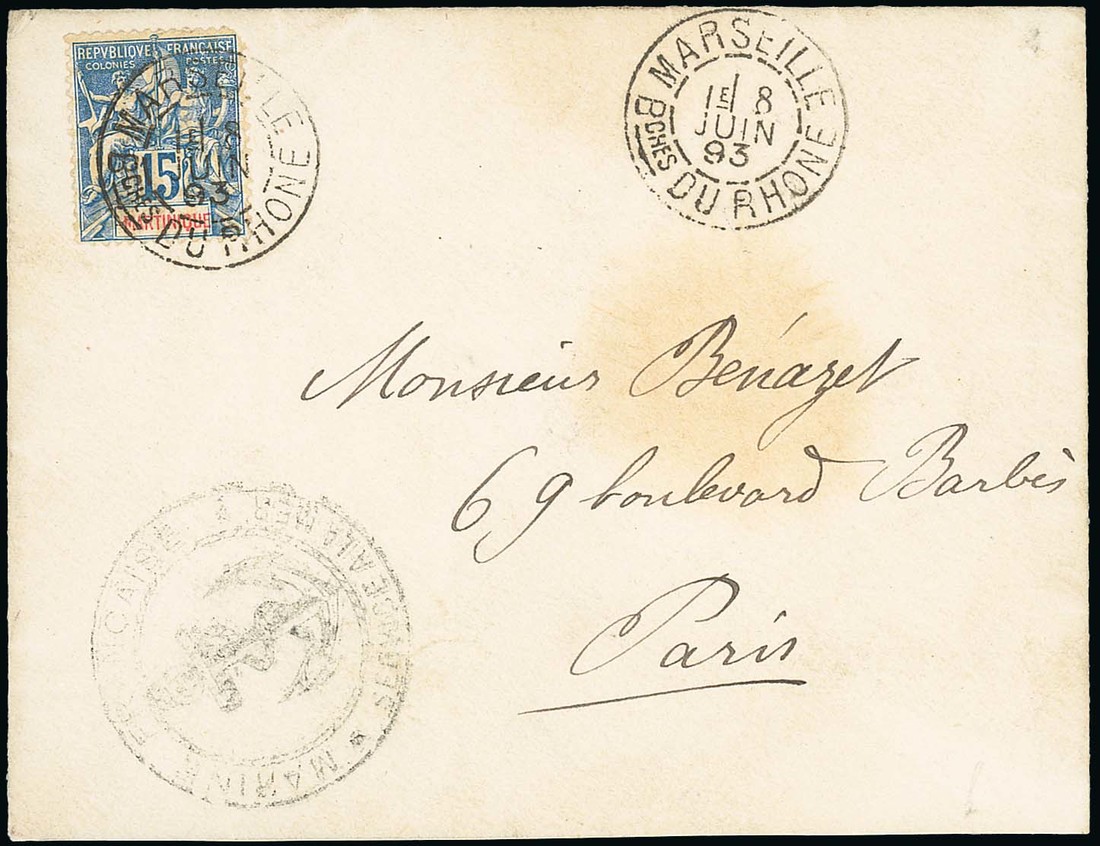 REPVBLIQUE FRANÇAISE
COLONIES POSTES
15
MARTINIQUE
MARSEILLE
1E 8
JUIN
93
BCHES DU RHONE
MARSEILLE
1E 8
JUIN
93
BCHES DU RHONE
Monsieur Bénazet
69 boulevard Barbès
Paris
MARINE FRANÇAISE
SERVICE A LA MER